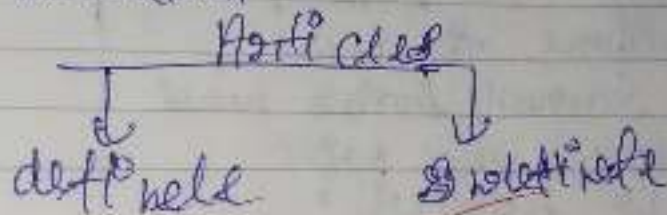 Articles
definete
Indefinete